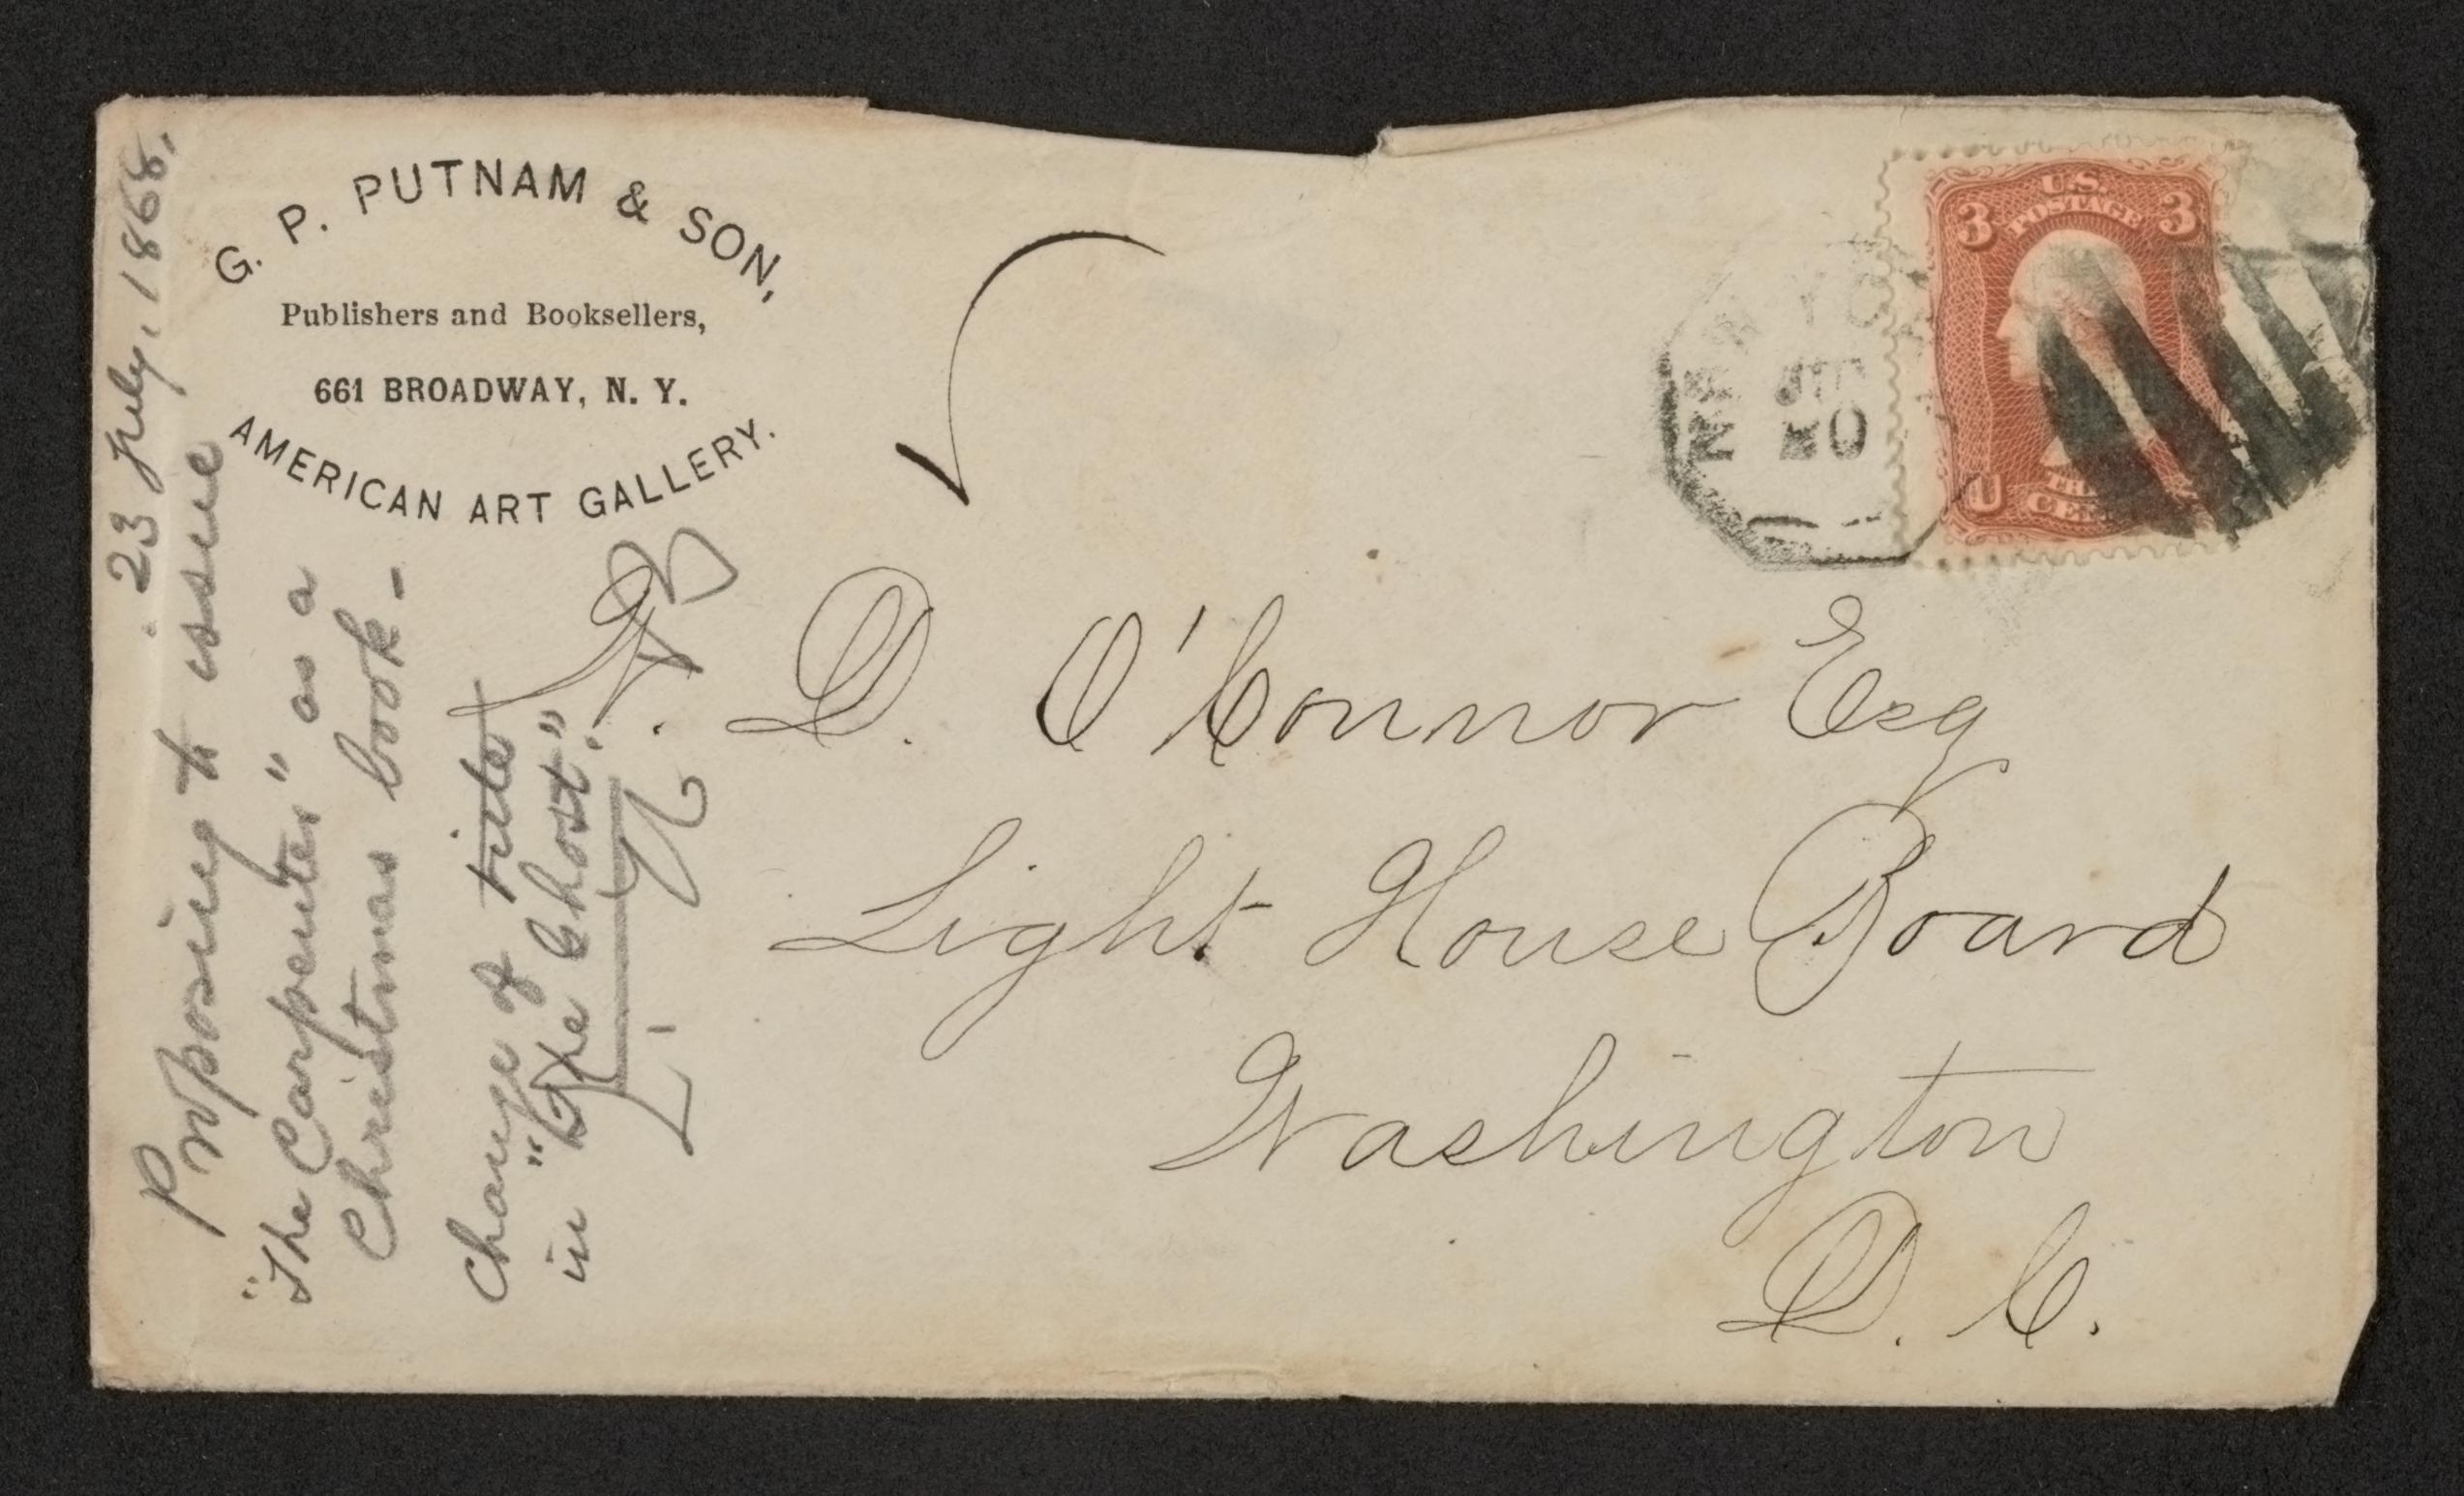 G. P. PUTNAM & SON,
Publishers and Booksellers,
661 BROADWAY, N. Y.
AMERICAN ART GALLERY.
U.S.
POSTAGE
3 3
U
NEW YO
W. D. O'Connor Esq
Light House Board
Washington
D. C.
23 July, 1868.
Proposing to issue
"The Carpenter" as a
Christmas book -
Change of title
in "The Ghost".